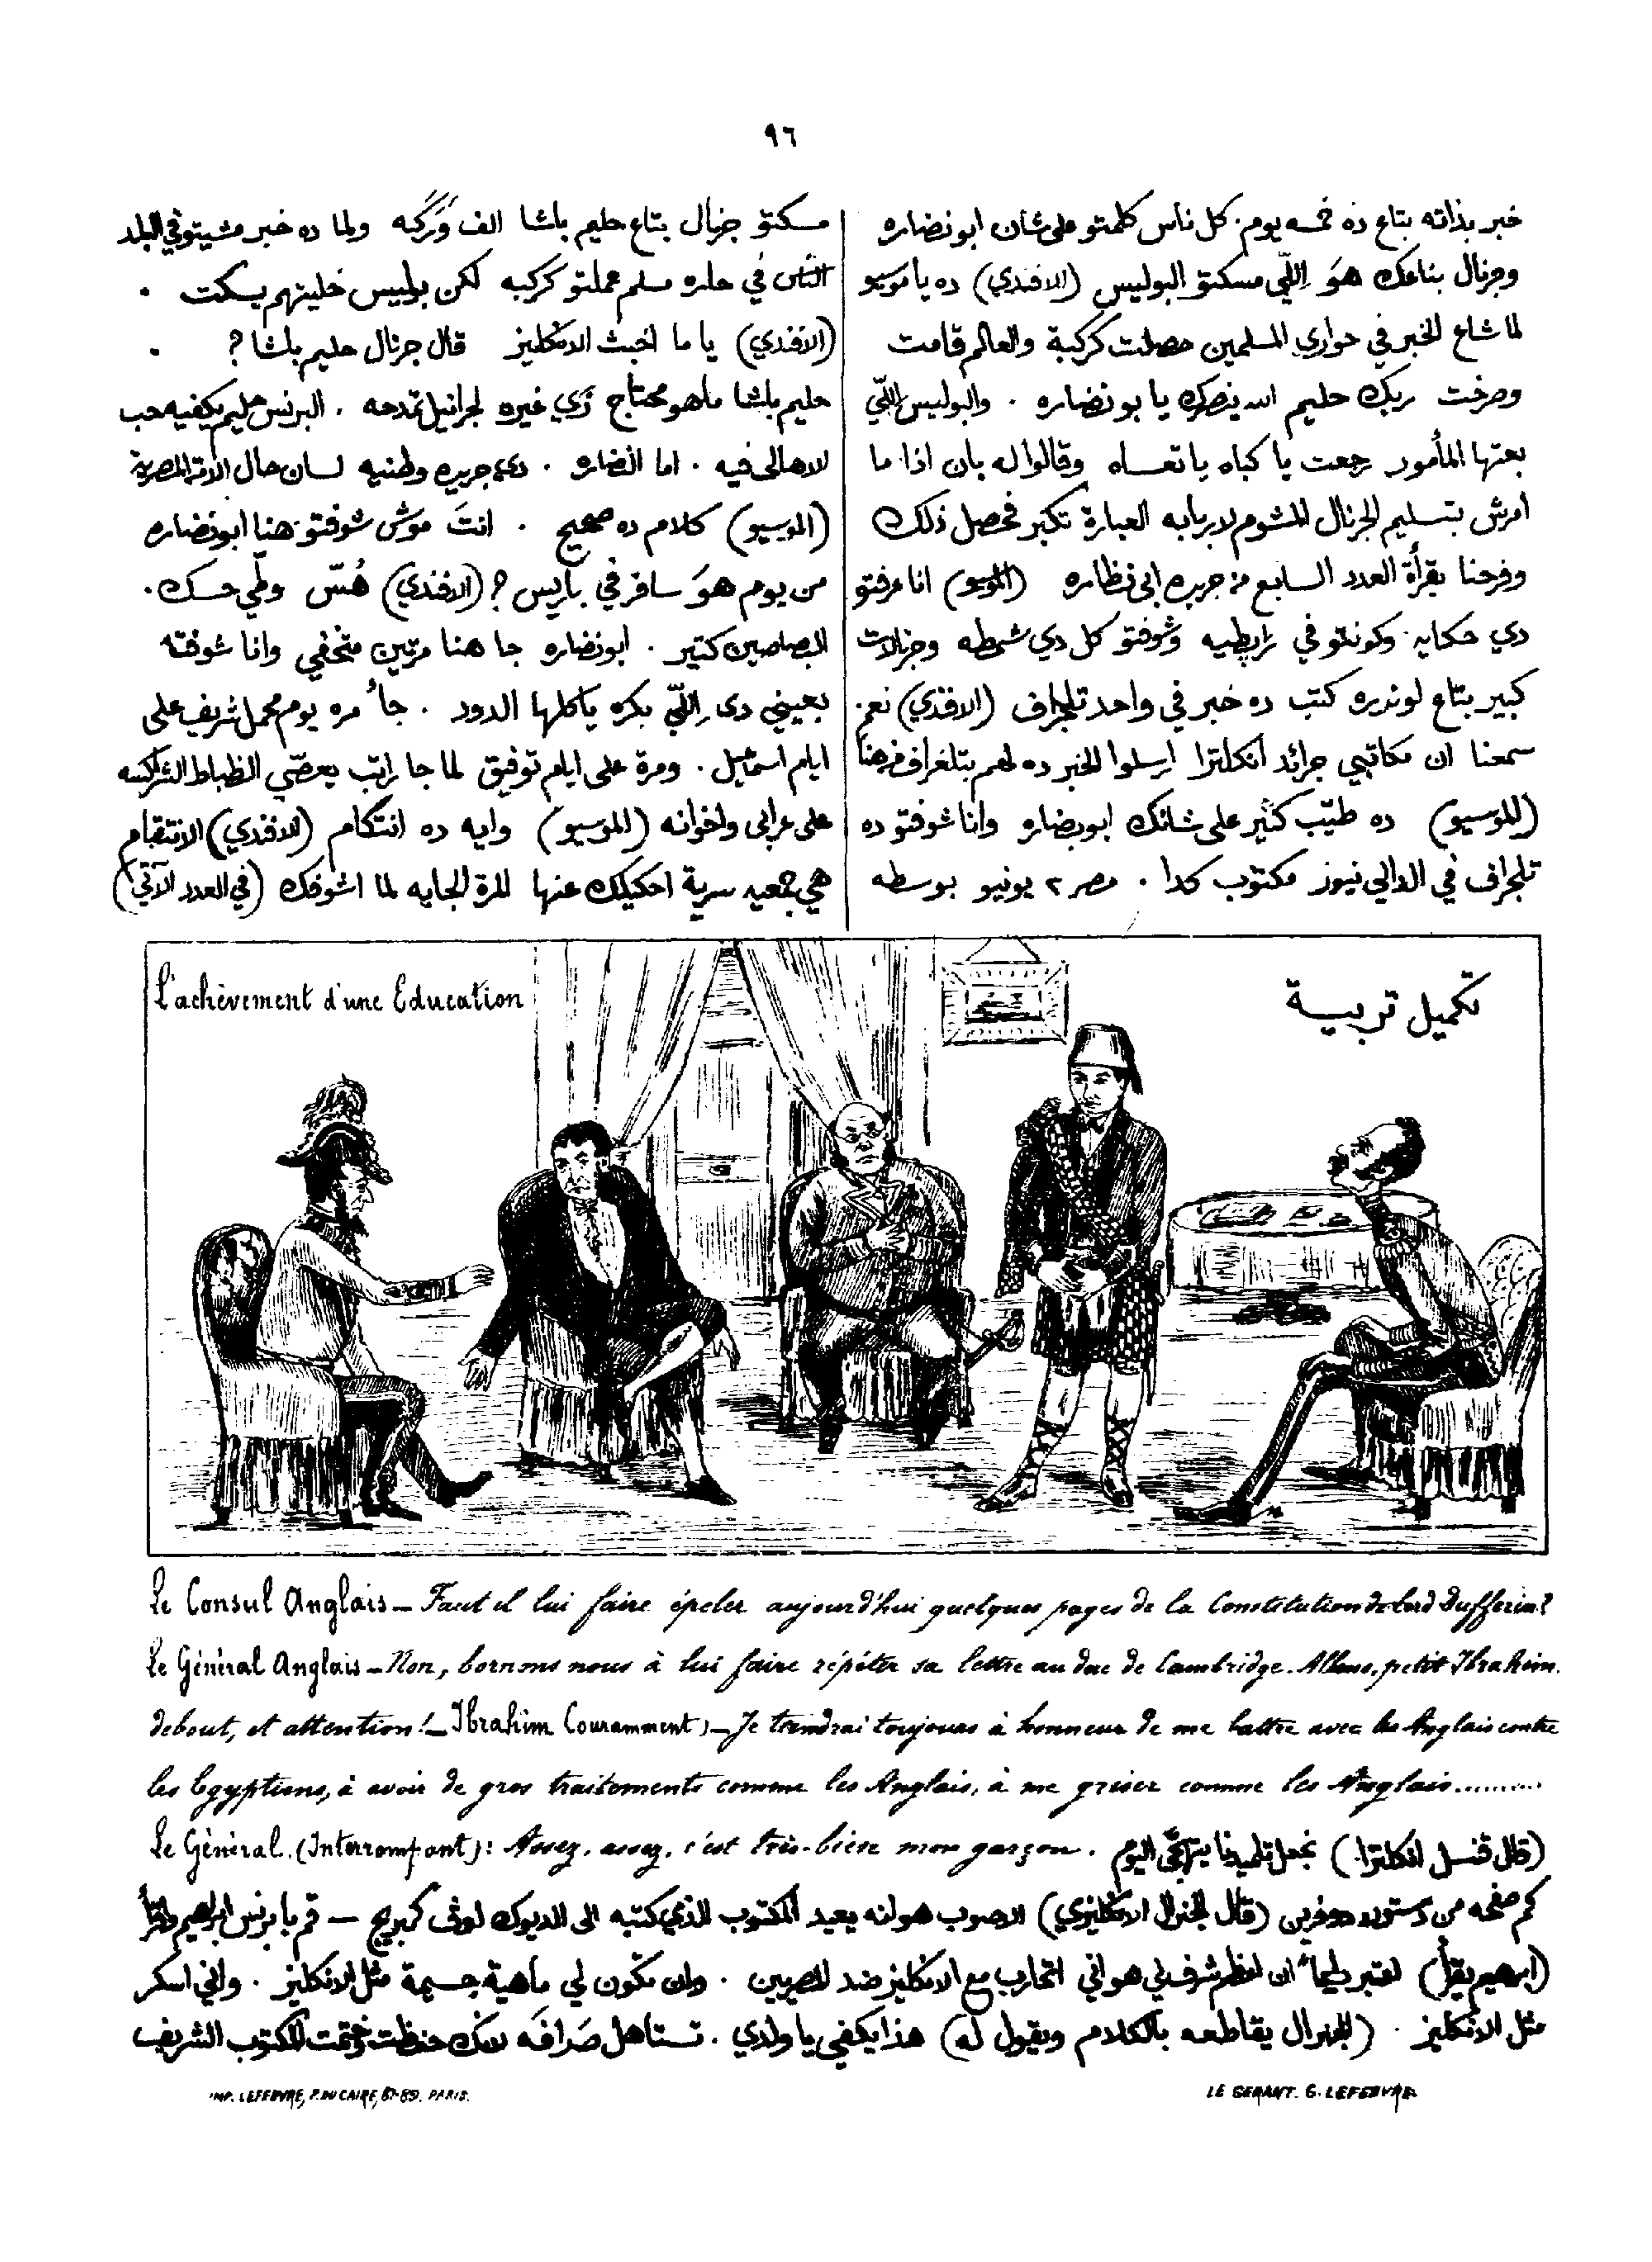 ٩٦
خبر بذاته بتاع ده خمسه يوم. كل ناس كلمتو على شان ابو نضاره
وجرنال بتاعك هوَ اِللّي مسكتو البوليس (الافندي) ده يا موسيو
لما شاع الخبر في حواري المسلمين حصلت كركبة والعالم قامت
وصرخت ربك حليم الله ينصرك يا بو نضاره . والبوليس اللّي
بعتها المأمور رجعت يا كباه يا تعساه وقالوا له بان اذا ما
امرش بتسليم الجرنال المشوم لاربابه العبارة تكبر فحصل ذلك
وفرحنا بقرأة العدد السابع من جريدة ابي نظاره (الموسيو) انا عرفتو
دي حكايه وكونتو في زابطيه وشوفتو كل دي شمطه وجرنالات
كبير بتاع لوندره كتب ده خبر في واحد تلجراف (الافندي) نعم.
سمعنا ان مكاتبي جرائد انكلترا ارسلوا الخبر ده لهم بتلغراف فرحنا
(الموسيو) ده طيّب كثير على شانك ابو نضاره وانا شوفتو ده
تلجراف في الدالي نيوز مكتوب كدا . مصر ٢ يونيو بوسطه
مسكتو جرنال بتاع حليم باشا الف ورّكه ولما ده خبر مشيتو في البلد
الناس في حاره مسلم عملتو كركبه لكن بوليس خليتهم يسكت .
(الافندي) يا ما اخبث الانكليز قال جرنال حليم باشا ? .
حليم باشا ما هو محتاج زي غيره لجرانيل تمدحه . البرنس حليم يكفيه حب
الاهالي فيه . اما النضاره . دي جريده وطنيه لسان حال الامة المصرية
(الموسيو) كلام ده صحيح . انتَ موش شوفتو هنا ابو نضاره
من يوم هوَ سافر في باريس ? (الافندي) هُسّ وطّي حسك .
البصاصين كتير . ابو نضاره جا هنا مرتين متخفي وانا شوفته
بعيني دى اِللّي بكره ياكلها الدود . جا مره يوم محمل شريف على
ايام اسمعيل . ومرة على ايام توفيق لما جا راتب يعصّي الظباط الشراكسه
على عرابي واخوانه (الموسيو) وايه ده انتكام (الافندي) الانتقام
هي جمعيه سرية احكيلك عنها المرة الجايه لما اشوفك (في العدد الآتي)
L'achèvement d'une Education
تكميل تربية
Le Consul Anglais — Faut il lui faire épeler aujourd'hui quelques pages de la Constitution de Lord Dufferin?
Le Général Anglais — Non, bornons nous à lui faire répéter sa lettre au duc de Cambridge. Allons, petit Ibrahim,
debout, et attention! — Ibrahim (Couramment) — Je tiendrai toujours à honneur de me battre avec les Anglais contre
les Egyptiens, à avoir de gros traitements comme les Anglais, à me griser comme les Anglais.........
Le Général. (Interrompant): Assez, assez, c'est très-bien mon garçon.
(قال قنسل انكلترا) نجعل تلميذنا يتهجّى اليوم
كم صفحه من دستور دوفرين (قال الجنرال الانكليزي) الاصوب هو انه يعيد المكتوب الذي كتبه الى الديوك اوف كمبريج — قم يا برنس ابراهيم واقرأ
(ابرهيم يقرأ) اعتبر دايماً ان اعظم شرف لي هو اني اتحارب مع الانكليز ضد المصريين . وان تكون لي ماهية جسيمة مثل الانكليز . واني اسكر
مثل الانكليز . (الجنرال يقاطعه بالكلام ويقول له) هذا يكفي يا ولدي . تستاهل صرافه لانك حفظت وختمت المكتوب الشريف
IMP. LEFEBVRE, P. DU CAIRE, 87-89. PARIS.
LE GERANT. G. LEFEBVRE